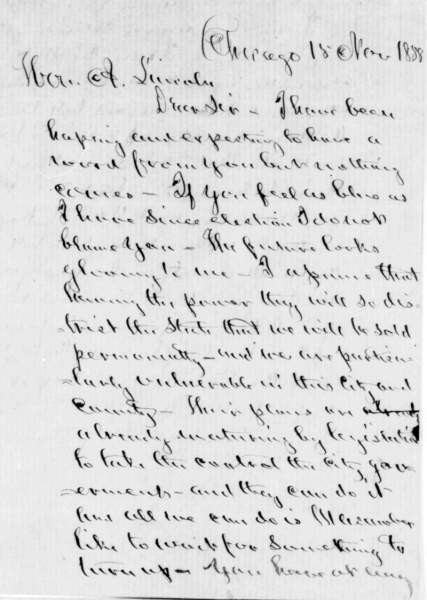 Chicago 15 Nov 1858
Hon. A. Lincoln
Dear Sir - I have been
hoping and expecting to have a
word from you but nothing
comes - If you feel as blue as
I have since election I do not
blame you - The future looks
gloomy to me - I assume that
having the power they will so dis-
trict the State that we will be sold
permanently - and we are particu-
larly vulnerable in this City and
County - Their plans are
already maturing by legislation
to take the control the City gov-
ernment - and they can do it
and all we can do is Macawber
like to wait for something to
turn up - You have at any